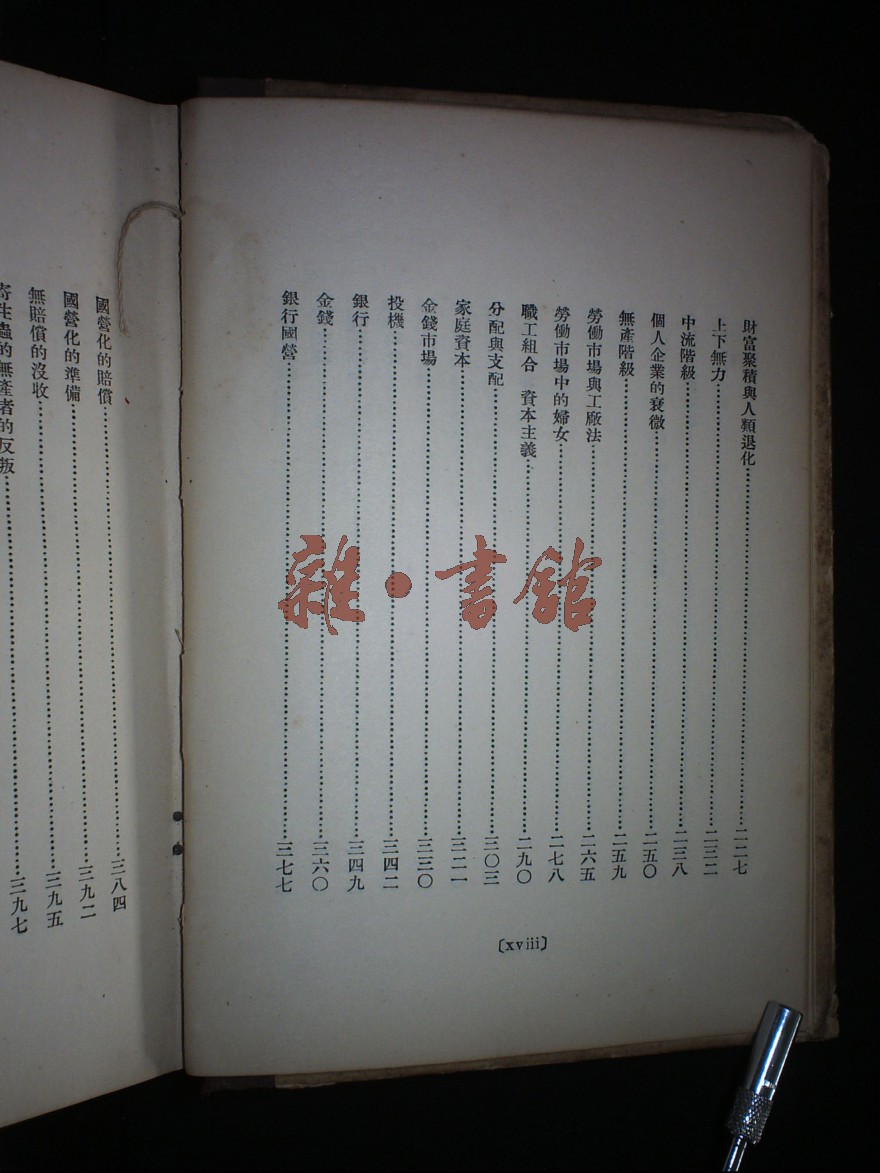 財富聚積與人類退化……二二七
上下無力……二三二
中流階級……二三八
個人企業的衰微……二五〇
無產階級……二五九
勞働市場與工廠法……二六五
勞働市場中的婦女……二七八
職工組合　資本主義……二九〇
分配與支配……三〇三
家庭資本……三二一
金錢市場……三三〇
投機……三四二
銀行……三四九
金錢……三六〇
銀行國營……三七七
〔xviii〕
國營化的賠償……三八四
國營化的準備……三九二
無賠償的沒收……三九五
寄生蟲的無產者的反叛……三九七
雜·書館